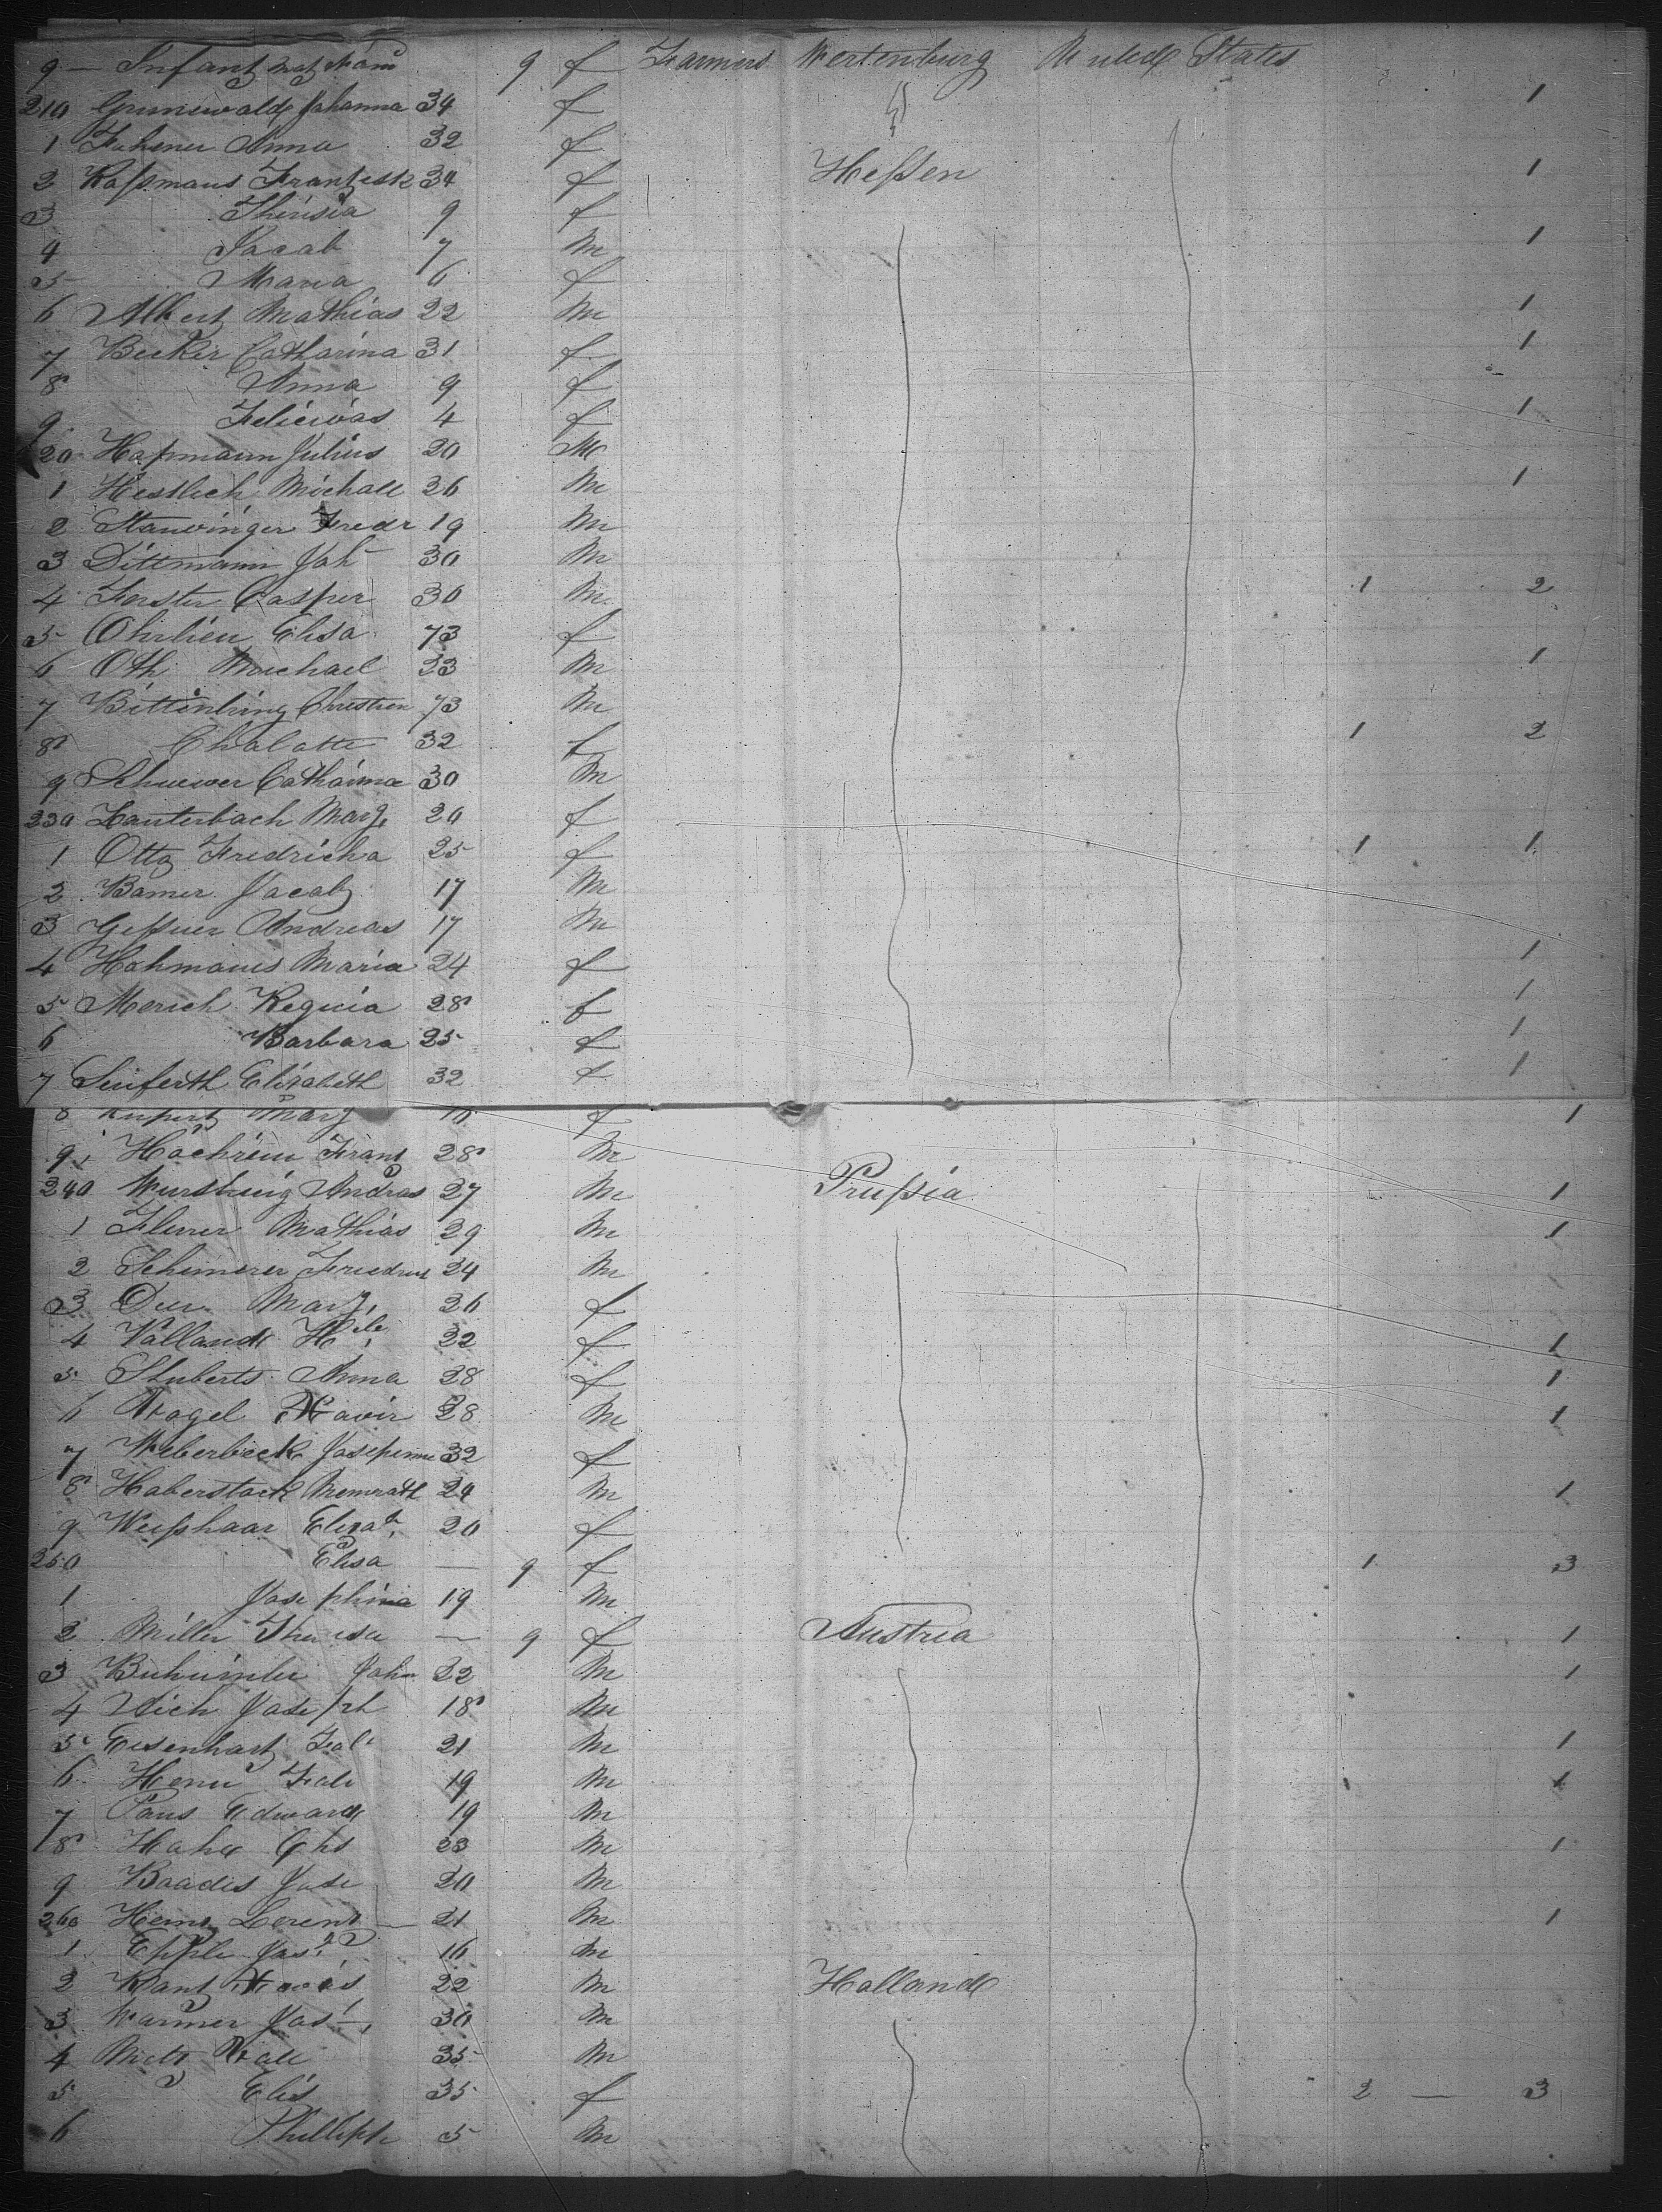 9 — Infant not Nam 9 f Farmers Wertenburg United States
210 Grunewald Johanna 34 f 1
1 Fahener Anna 32 f
2 Kaßmaus Frantzisk 34 f Heßen 1
3 Therisia 9 f
4 Jacab 7 m 1
5 Maria 6 f
6 Albert Mathias 22 m 1
7 Becker Catharina 31 f 1
8 Anna 9 f
9 Feliciwas 4 f 1
20 Haßmann Julius 20 M
1 Hestlich Michall 26 m 1
2 Stanvinger Fredr 19 m
3 Dittmann Joh 30 m
4 Forster Casper 30 m 1 2
5 Ohrlien Elisa 73 f
6 Oth Michael 33 m 1
7 Bittinbring Christien 73 m
8 Chalatte 32 f 1 2
9 Schuewer Catharina 30 m
230 Lauterbach Marg 20 f
1 Otto Fredricha 25 f 1 1
2 Bamer Jacab 17 m
3 Geßner Andreas 17 m
4 Hahmaus Maria 24 f 1
5 Merich Reguia 28 f 1
6 Barbara 25 f 1
7 Seuferth Elizabeth 32 f 1
8 Rupert Mary f 1
9 Hochrein Franz 28 m
240 Wursburg Andras 27 m Prußia 1
1 Flerrer Mathias 29 m 1
2 Schimerer Friedrich 24 m
3 Durr Marg 26 f
4 Valland H 22 f 1
5 Stuberts Anna 28 f 1
6 Vogel Xavir 28 m 1
7 Weberbeck Josephine 32 f
8 Haberstack 24 m 1
9 Weißhaar Elizab 20 f
250 Elisa — 9 f 1 3
1 Josephina 19 m
2 Miller Theresa — 9 f Austria 1
3 Buheimler John 22 m 1
4 Sich Joseph 18 m
5 Eisenhart Fal 21 m 1
6 Henn 19 m 1
7 Paus Edward 19 m
8 Hahn Chs 23 m 1
9 Baades Jose 20 m
260 Heins Lorenz — 21 m 1
1 Epple Jos 16 m
2 Kant 22 m Holland
3 Warner Jos 30 m
4 35 m
5 Elis 35 f 2 — 3
6 Phillipp 5 m